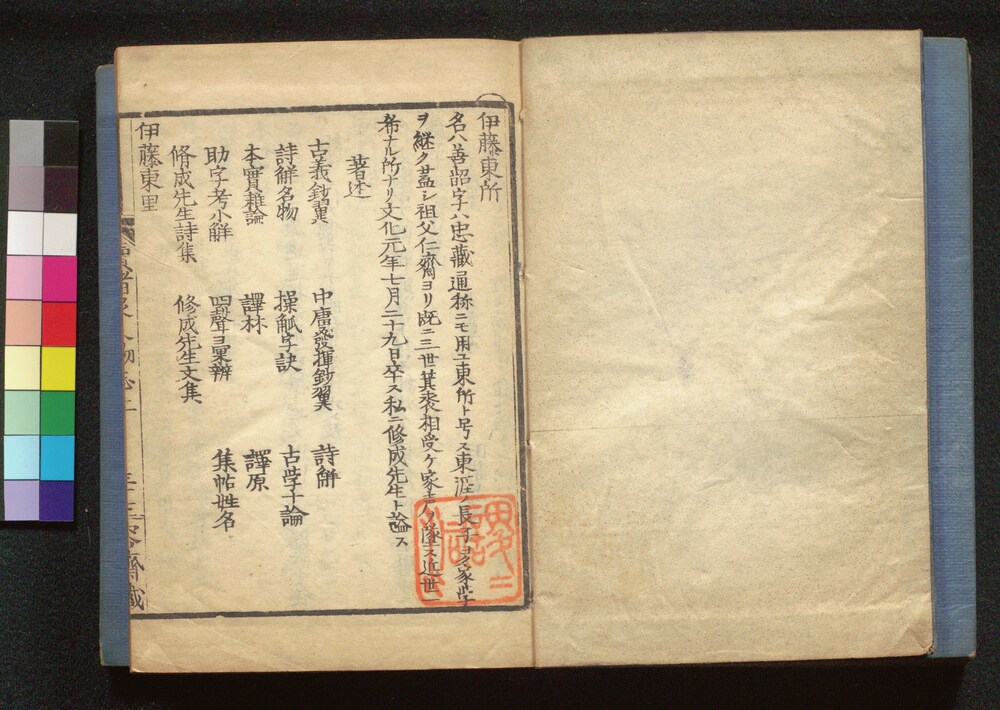 伊藤東所
名ハ善韶字ハ忠藏通称ニモ用ユ東所ト号ス東涯ノ長子ヨク家学
ヲ継ク蓋シ祖父仁齋ヨリ既ニ三世其業相受ケ家声ヲ墜ス近世
希ナル所ナリ文化元年七月二十九日卒ス私ニ修成先生ト謚ス
著述
古義鈔翼 中庸發揮鈔翼 詩解
詩解名物 操觚字訣 古学十論
本實雜論 譯林 譯原
助字考小解 四聲彙辨 集帖姓名
脩成先生詩集 修成先生文集
伊藤東里